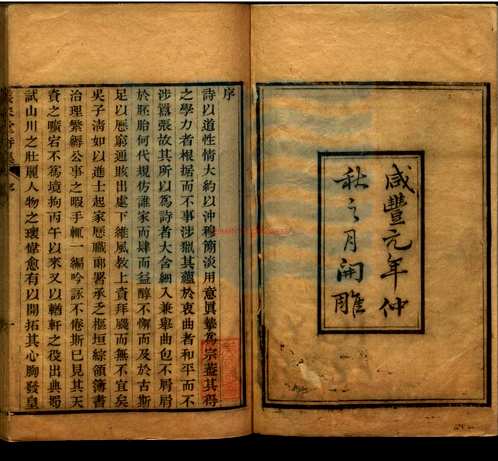 咸豐元年仲
秋之月開雕
序
詩以道性情大約以沖穆簡淡用意眞摯爲宗蓋其得
之學力者根据而不事涉獵其蘊於衷曲者和平而不
涉囂張故其所以爲詩者大含細入兼舉曲包不屑屑
於胚胎何代規仿誰家而肆而益醇不懈而及於古斯
足以應窮通賅出處下維風教上賁拜颺而無不宜矣
吳子清如以進士起家歷職郎署承之樞垣綜領簿書
治理繁縟公事之暇手輒一編吟詠不倦斯已見其天
資之曠宕不爲境拘丙午以來又以輶軒之役出典蜀
試山川之壯麗人物之瓌偉愈有以開拓其心胸發皇